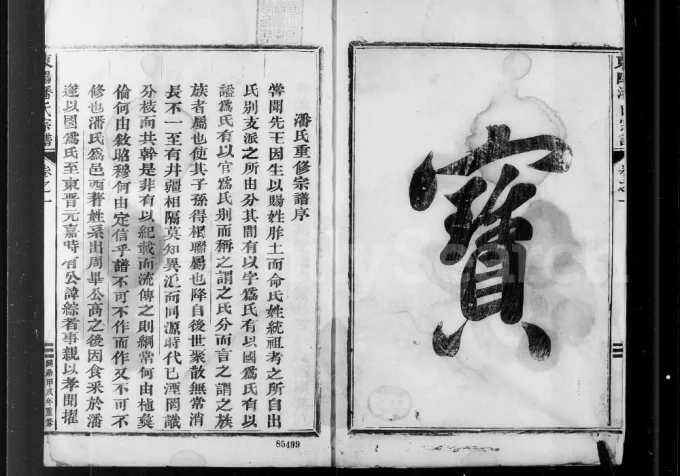 東陽潘氏宗譜 卷之一
寶
潘氏重修宗譜序
嘗聞先王因生以賜姓胙土而命氏姓統祖考之所自出
氏別支派之所由分其間有以字爲氏有以國爲氏有以
謚爲氏有以官爲氏別而稱之謂之氏分而言之謂之族
族者屬也使其子孫得相聯屬也降自後世聚散無常消
長不一至有井疆相隔莫知異派而同源時代已湮罔識
分枝而共幹是非有以紀載而流傳之則綱常何由植彝
倫何由敘昭穆何由定信乎譜不可不作而作又不可不
修也潘氏爲邑西著姓系出周畢公高之後因食采於潘
遂以國爲氏至東晋元嘉時有公諱綜者事親以孝聞擢
東陽潘氏宗譜 卷之一
甲戌年重修
85499